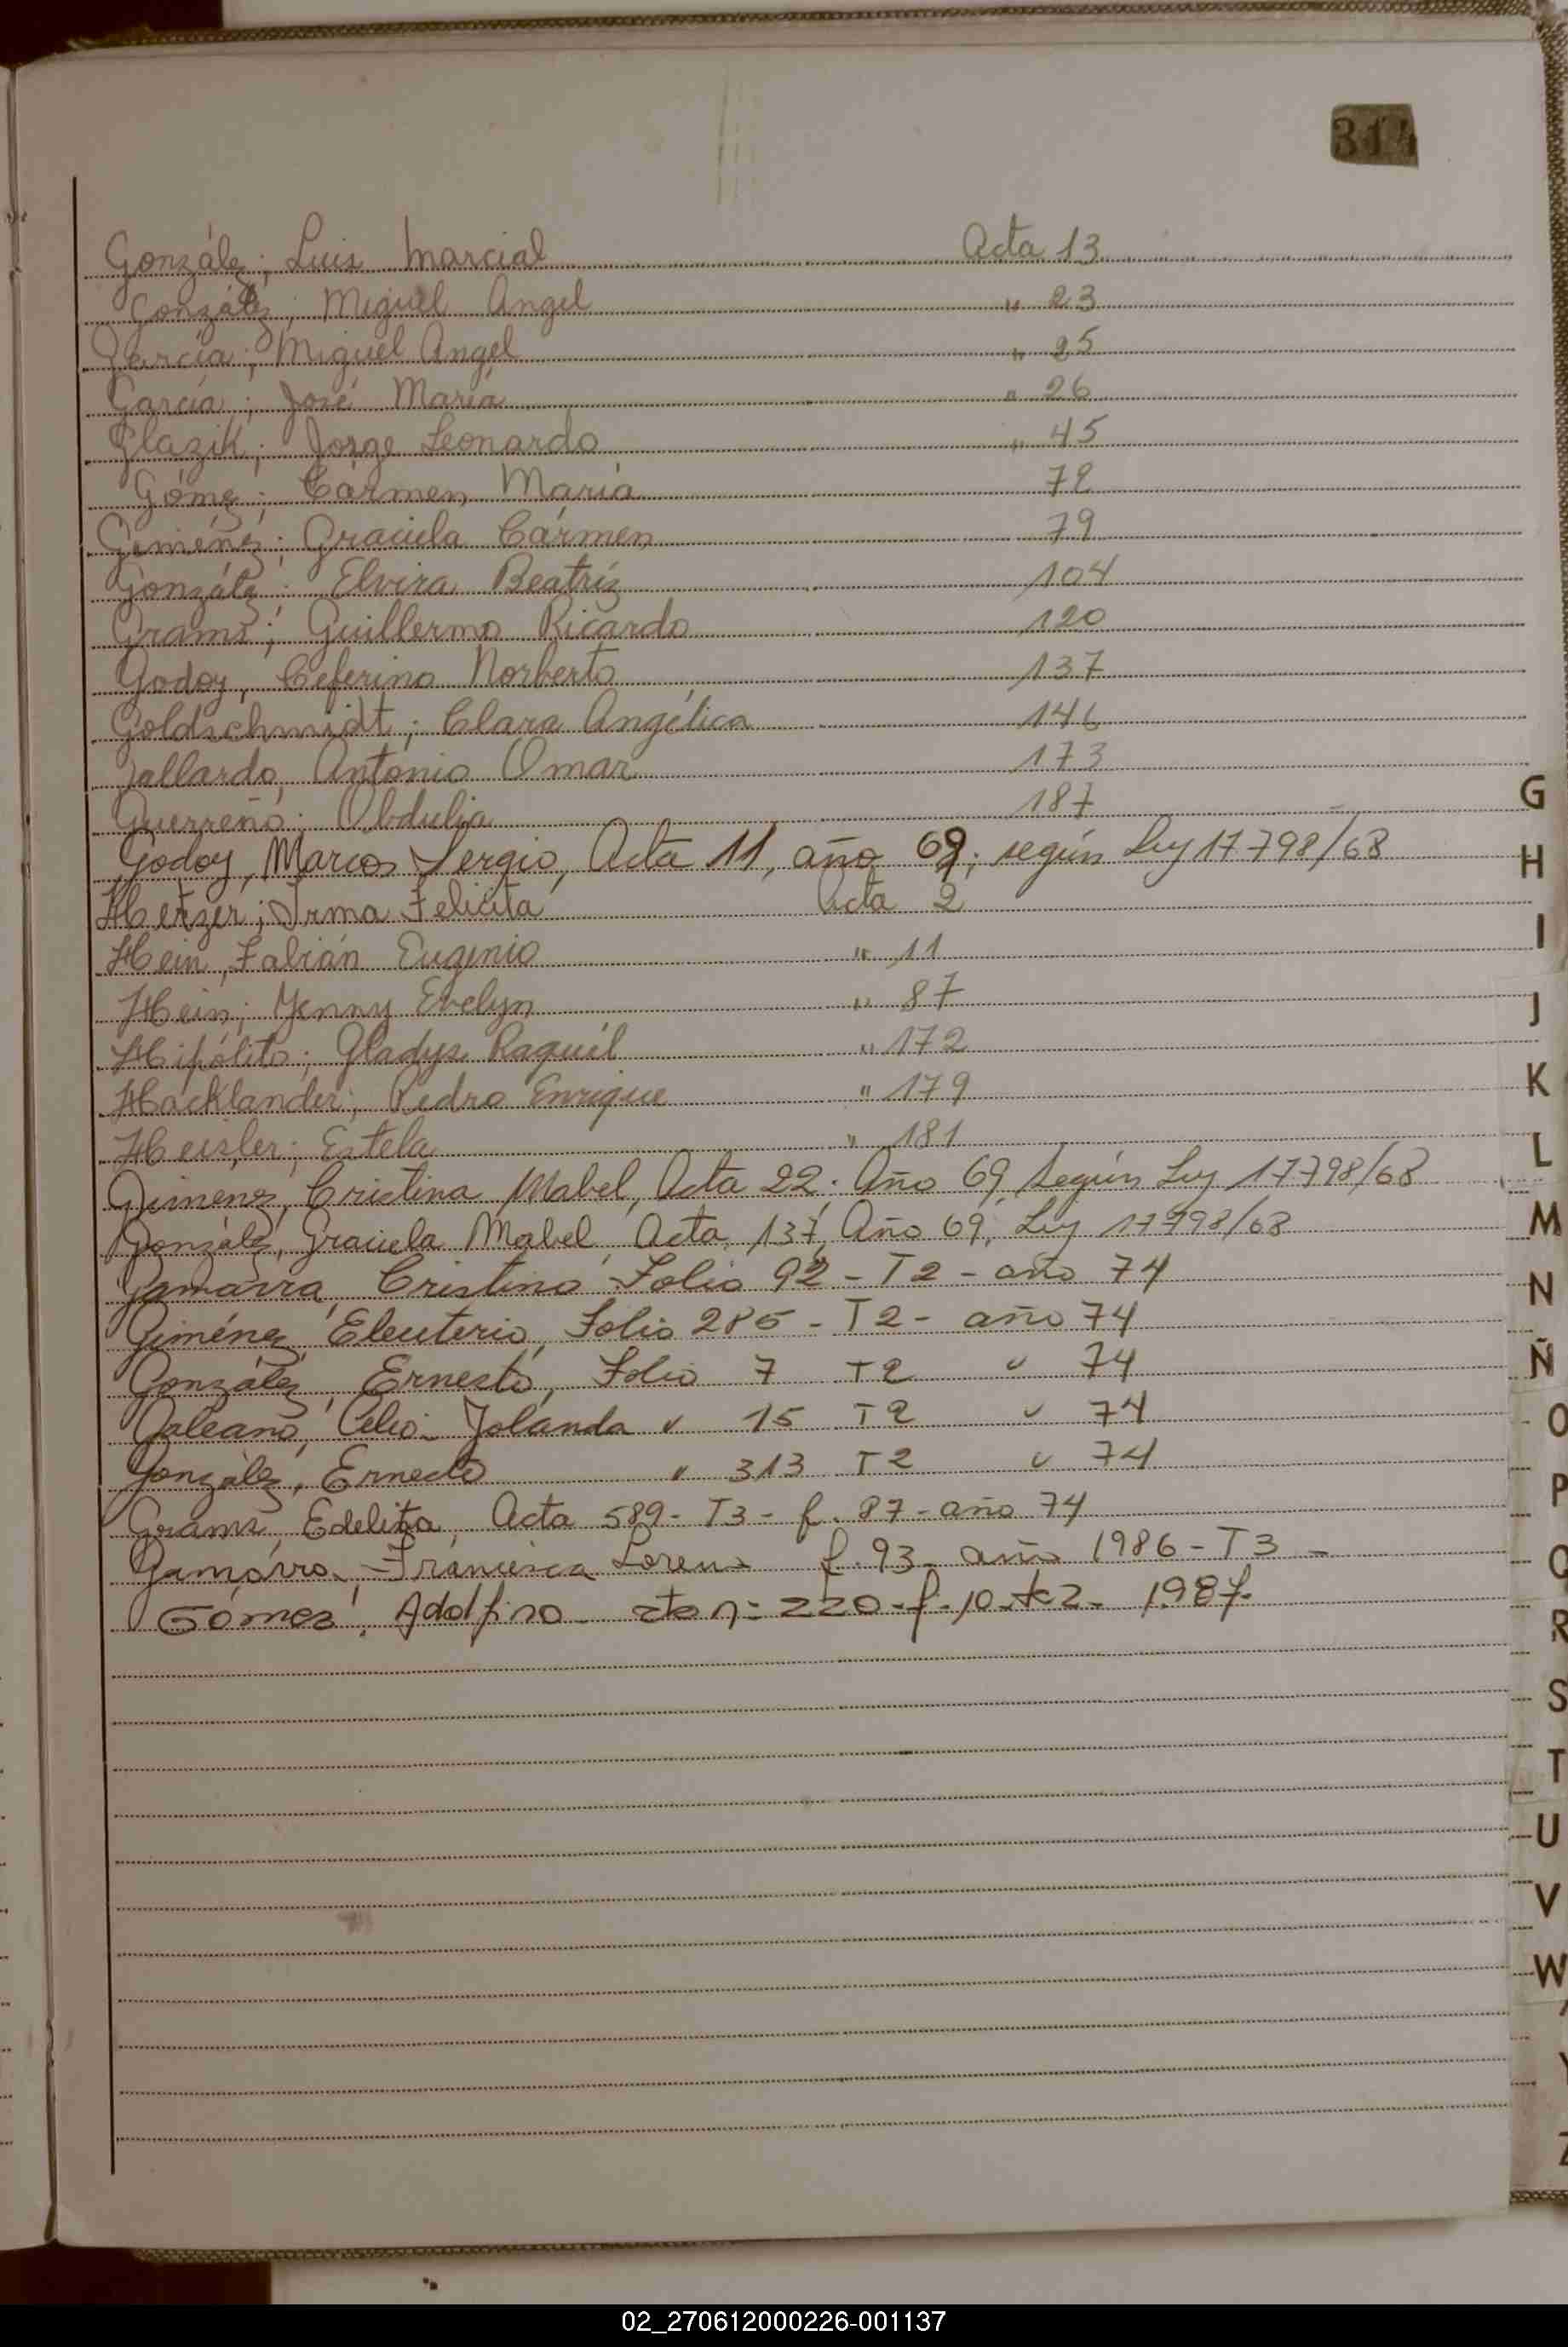 314
González; Luis Marcial Acta 13
González; Miguel Angel " 23
García; Miguel Angel " 25
García; José María " 26
Glazik; Jorge Leonardo " 45
Gómez; Cármen María 78
Giménez; Graciela Cármen 79
González; Elvira Beatríz 104
Grams; Guillermo Ricardo 120
Godoy, Ceferino Norberto 137
Goldschmidt; Clara Angélica 146
Gallardo, Antonio Omar 173
Guerreño; Obdulia 187
Godoy, Marcos Sergio, Acta 11, año 69; según Ley 17798/68
Hetzer; Irma Felicita Acta 2
Hein, Fabián Eugenio " 11
Hein; Yenny Evelyn " 87
Hipólito; Gladys Raquél " 172
Hacklander; Pedro Enrique " 179
Heisler; Estela " 181
Gimenez, Cristina Mabel, Acta 22; Año 69, Según Ley 17798/68
González, Graciela Mabel Acta, 137, Año 69, Ley 17798/68
Gamarra, Cristino Folio 92 - T2 - año 74
Giménez, Eleuterio, Folio 285 - T2 - año 74
González, Ernesto, Folio 7 T2 " 74
Galeano, Celia Yolanda " 15 T2 " 74
González, Ernesto " 313 T2 " 74
Grams, Edelita, Acta 589 - T3 - f. 87 - año 74
Gamarra, Francisca Lorena f. 93 - año 1986 - T3 -
Gómez, Adolfina 220 - f. 10 - 2 - 1987.
G
H
I
J
K
L
M
N
Ñ
O
P
Q
R
S
T
U
V
W
Y
Z
02_270612000226-001137